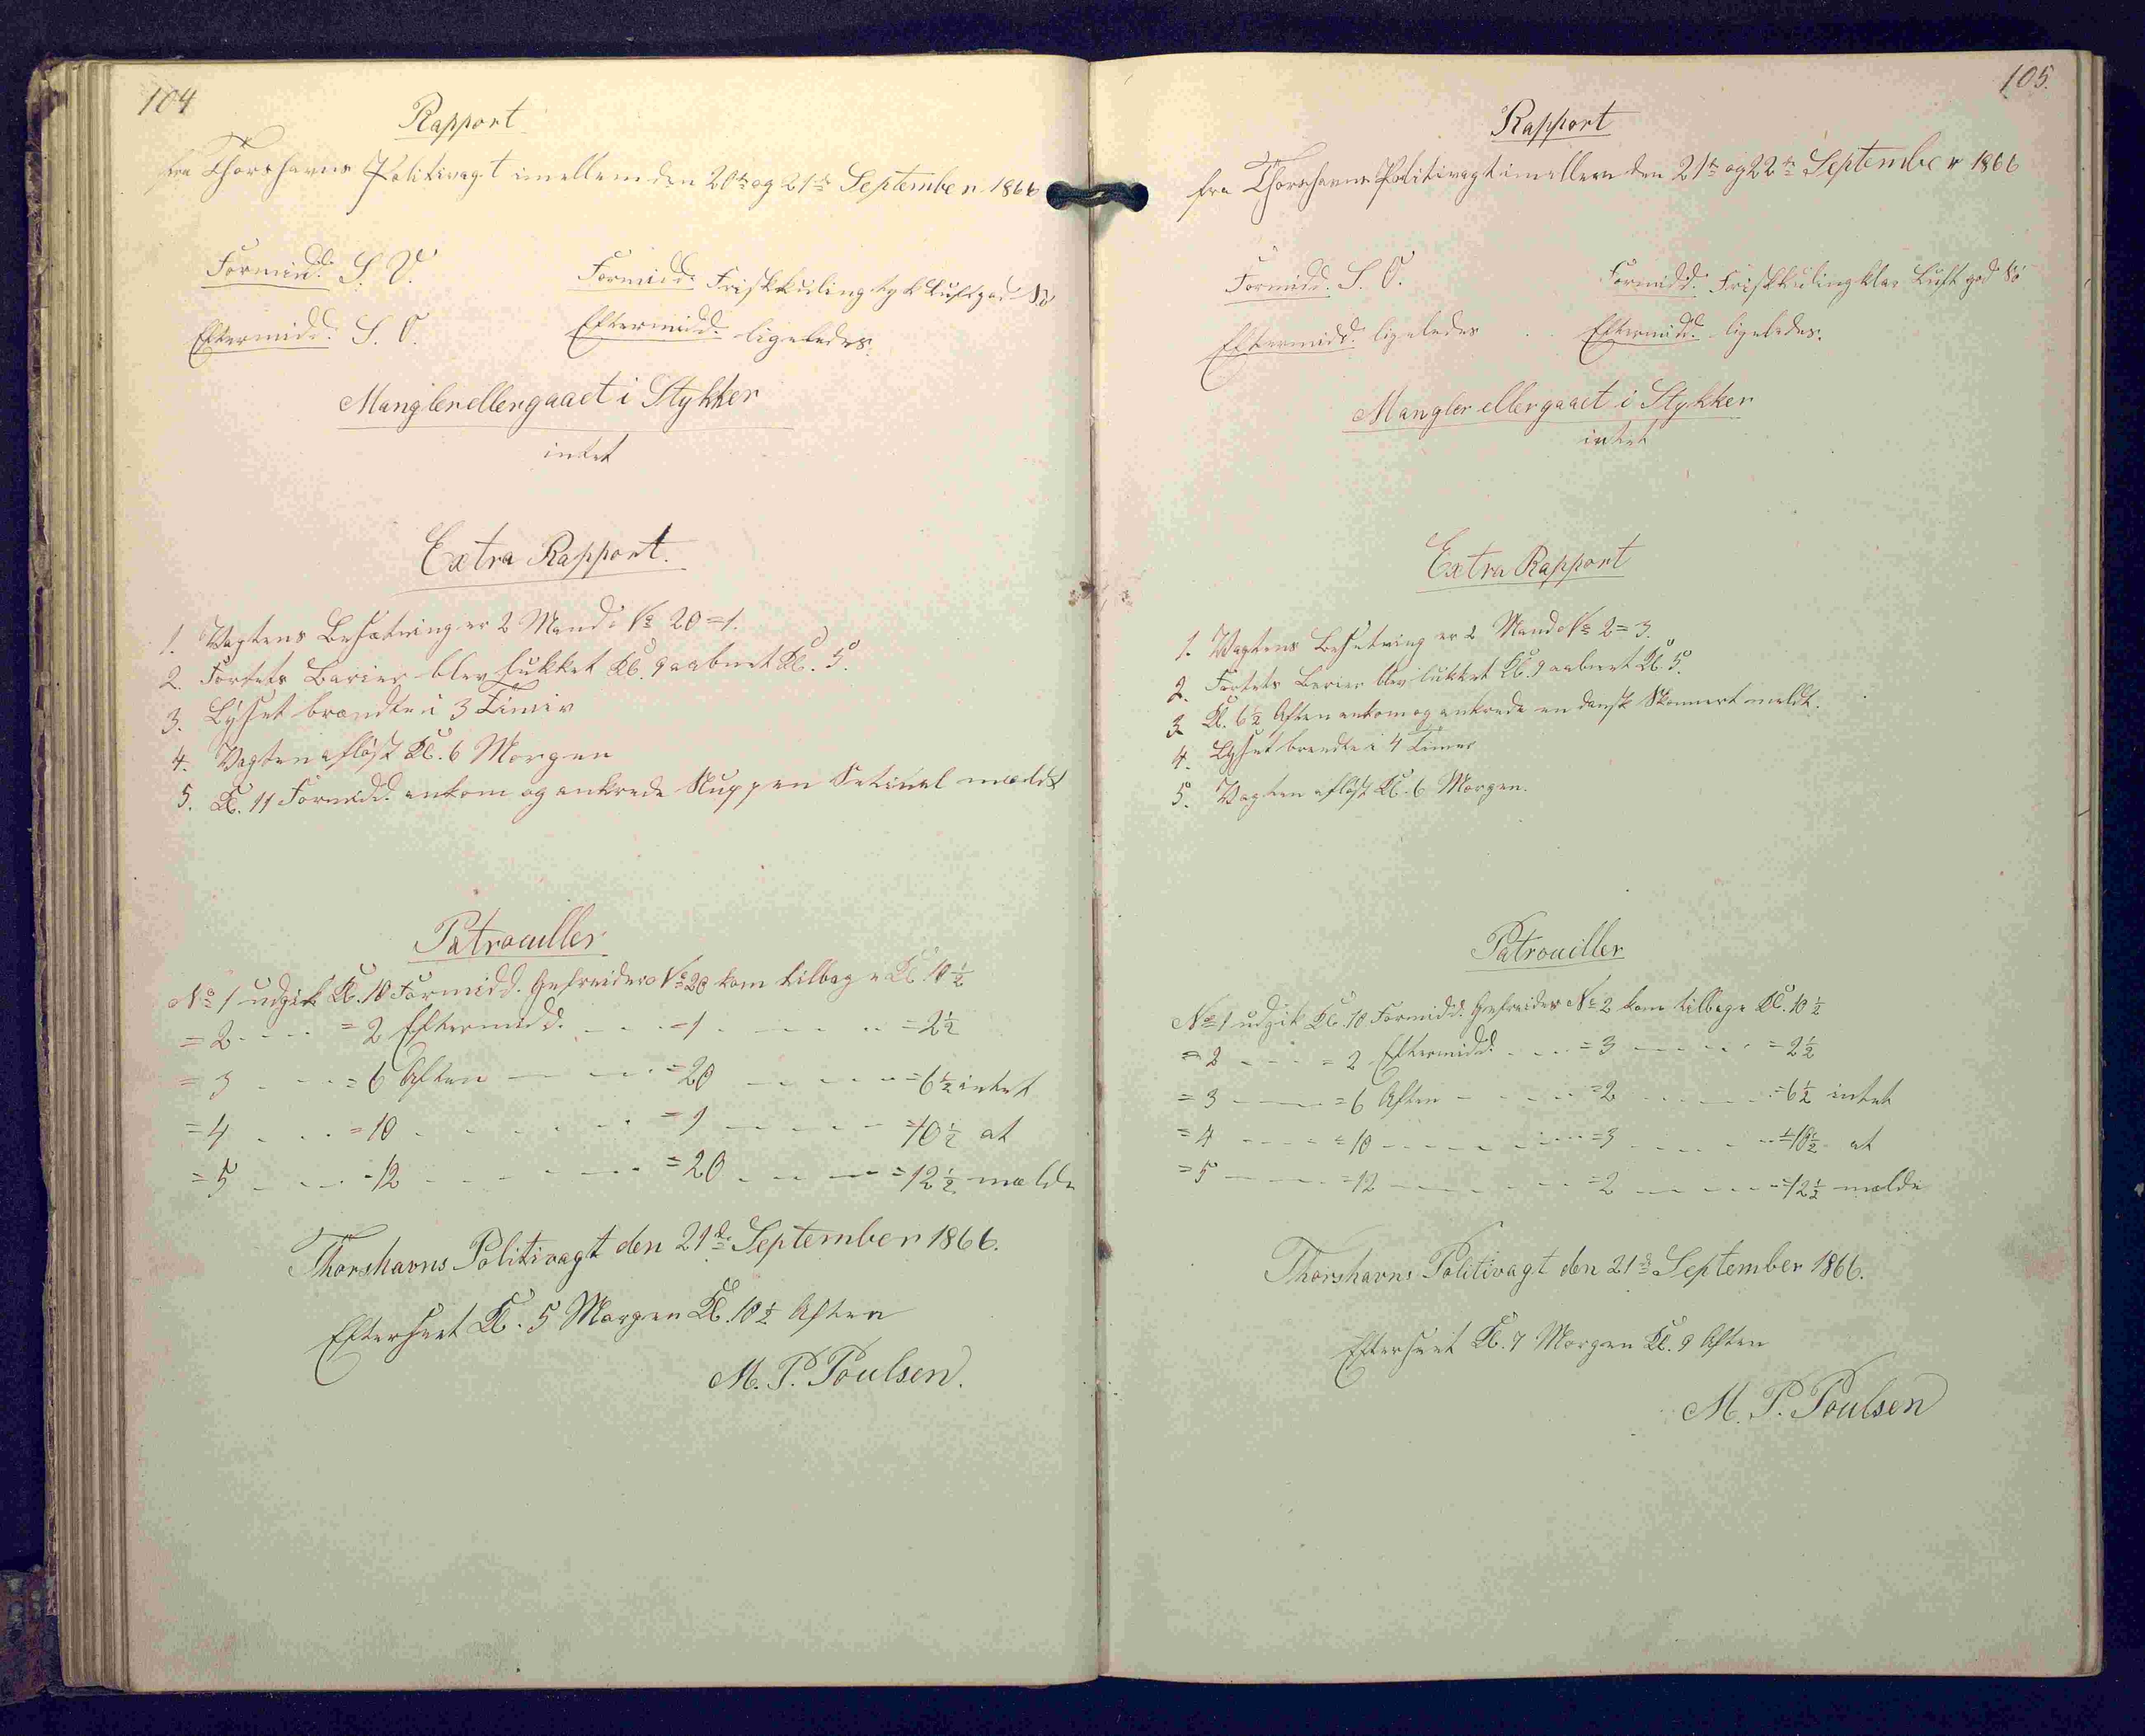 104
Rapport
fra Thorshavns Politivagt imellem den 20de og 21de September 1866
Formidd. S. V. Formidd. Friskkuling tyk Luft god Sö
Eftermidd. S. O. Eftermidd. ligeledes.
Mangler eller gaaet i Stykker
intet
Extra Rapport.
1. Vagtens Besætning er 2 Mand No 20=1.
2. Fortets Barier blev lukket Kl. 9 aabnet Kl. 5.
3. Lyset brændte i 3 Timer
4. Vagten aflöst Kl. 6 Morgen
5. Kl. 11 Formidd. ankom og ankrede Sluppen meldt
Patrouiller
No 1 udgik Kl. 10 Formidd. Gefreider No 20 kom tilbage Kl. 10½
= 2 - - - = 2 Eftermidd. - - - =1 - - - - - =2½
= 3 - - - =6 Aften - - - =20 - - - - =6½ intet
=4 - - - =10 - - - - - - =1 - - - - =10½ at
=5 - - - =12 - - - - - - =20 - - - - =12½ melde
Thorshavns Politivagt den 21de September 1866.
Efterseet Kl. 5 Morgen Kl. 10½ Aften
M. P. Poulsen.
105.
Rapport
fra Thorshavns Politivagt imellem den 21de og 22de September 1866
Formidd. S. O. Formidd. Friskkuling klar Luft god Sö
Eftermidd. ligeledes Eftermidd. ligeledes.
Mangler eller gaaet i Stykker
intet
Extra Rapport
1. Vagtens Besætning er 2 Mand No 2=3.
2. Fortets Barier blev lukket Kl. 9 aabnet Kl. 5.
3 Kl. 6½ Aften ankom og ankrede en dansk Skonnert meldt.
4. Lyset brændte i 4 Timer
5. Vagten aflöst Kl. 6 Morgen.
Patrouiller
No 1 udgik Kl. 10 Formidd. Gefreider No 2 kom tilbage Kl. 10½
= 2 - - - = 2 Eftermidd. - - - =3 - - - - - =2½
= 3 - - - =6 Aften - - - - =2 - - - - - =6½ intet
= 4 - - - =10 - - - - - - =3 - - - - =10½ at
=5 - - - =12 - - - - - - =2 - - - - =12½ melde
Thorshavns Politivagt den 21de September 1866.
Efterseet Kl. 7 Morgen Kl. 9 Aften
M. P. Poulsen